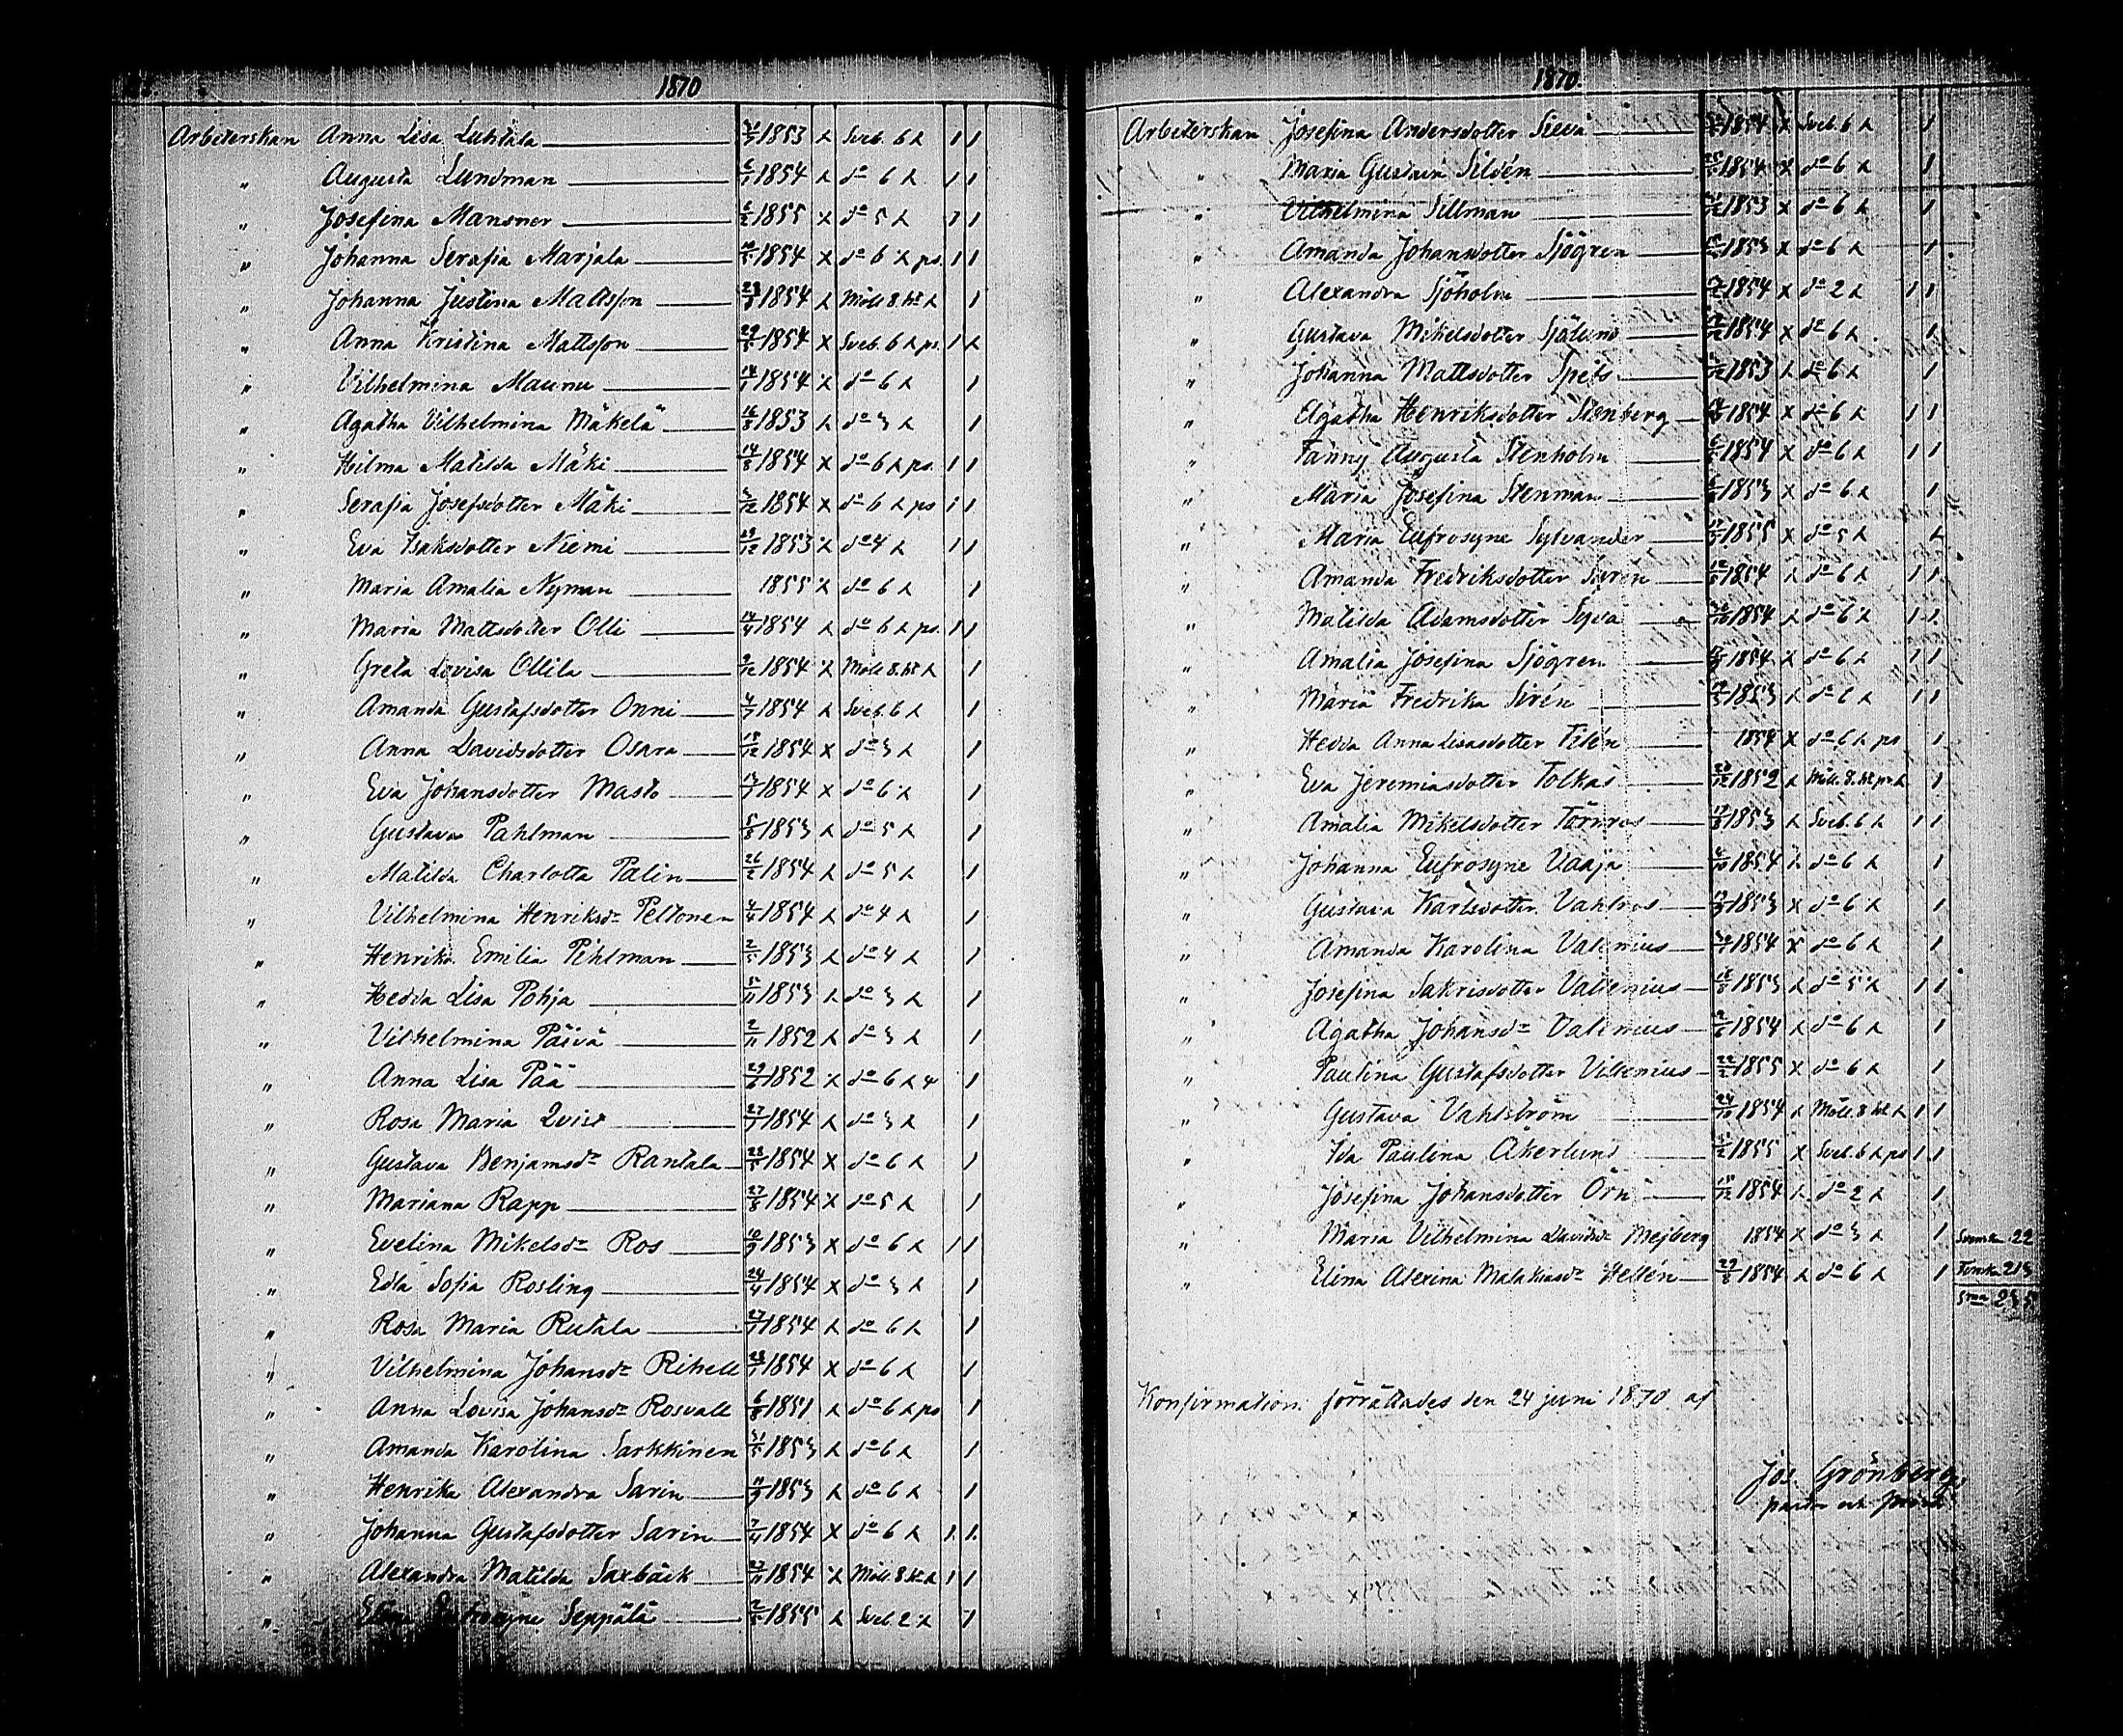 1870
Arbeterskan Anna Lisa Luhtala 1853 x Sveb. 6 x 1 1
" Augusta Lundman 6/1 1854 x do 6 x 1 1
" Josefina Mansner 6/2 1855 x do 5 x 1 1
" Johanna Serafia Marjala 10/5 1854 x do 6 x ps. 1 1
" Johanna Justina Mattsson 1854 x Möll 8. ht x 1
" Anna Kristina Mattsson 29/5 1854 x Sveb. 6 x ps. 1 x
" Vilhelmina Maunu 14/1 1854 x do 6 x 1
" Agatha Vilhelmina Mäkelä 16/8 1853 x do 3 x 1
" Hilma Matilda Mäki 14/8 1854 x do 6 x ps. 1 1
" Serafia Josefsdotter Mäki 3/12 1854 x do 6 x ps 1 1
" Eva Isaksdotter Niemi 29/12 1853 x do 4 x 1 1
" Maria Amalia Nyman 1855 x do 6 x 1
" Maria Mattsdotter Olli 14/4 1854 x do 6 x ps. 1 1
" Greta Lovisa Ollila 9/12 1854 x Möll 8. ht x 1
" Amanda Gustafsdotter Onni 4/7 1854 x Sveb. 6 x 1
" Anna Davidsdotter Osara 18/12 1854 x do 3 x 1
" Eva Johansdotter Masto 1854 x do 6 x 1
" Gustava Pahlman 5/8 1853 x do 5 x 1
" Matilda Charlotta Palin 26/2 1854 x do 5 x 1
" Vilhelmina Henriksdr Peltonen 4/4 1854 x do 4 x 1
" Henrika Emilia Pihlman 2/5 1853 x do 4 x 1
" Hedda Lisa Pohja 5/11 1853 x do 3 x 1
" Vilhelmina Päivä 2/11 1852 x do 3 x 1
" Anna Lisa Pää 29/6 1852 x do 6 x 4 1
" Rosa Maria Qvist 27/7 1854 x do 3 x 1
" Gustava Benjamsdr Rantala 28/5 1854 x do 6 x 1
" Mariana Rapp 27/8 1854 x do 5 x 1
" Evelina Mikelsdr Ros 10/9 1853 x do 6 x 1 1
" Edla Sofia Rosling 24/4 1854 x do 3 x 1
" Rosa Maria Rutala 27/7 1854 x do 6 x 1
" Vilhelmina Johansdr Rihell 28/1 1854 x do 6 x 1
" Anna Lovisa Johansdr Rosvall 6/8 1851 x do 6 x ps 1
" Amanda Karolina Sarkkinen 31/5 1853 x do 6 x 1
" Henrika Alexandra Sarin 11/9 1853 x do 6 x 1
" Johanna Gustafsdotter Sarin 7/4 1854 x do 6 x 1. 1.
" Alexandra Matilda Saxbäck 1854 x Möll 8 ht x 1 1
" Elina Eufrosyne Seppälä 2/5 1855 x Sveb. 2 x 1
1870.
Arbeterskan Josefina Andersdotter Siewä 1854 x Sveb. 6 x 1
" Maria Gustava Sildén 1854 x do 6 x 1
" Vilhelmina Sillman 1853 x do 6 x 1
" Amanda Johansdotter Sjögren 1853 x do 6 x 1
" Alexandra Sjöholm 1854 x do 2 x 1 1
" Gustava Mikelsdotter Sjölund 1854 x do 6 x 1
" Johanna Mattsdotter Spets 1853 x do 6 x 1
" Agatha Henriksdotter Stenberg 1854 x do 6 x 1 1
" Fanny Augusta Stenholm 1854 x do 6 x 1 1
" Maria Josefina Stenman 1853 x do 6 x 1
" Maria Eufrosyne Sylvander 1855 x do 5 x x
" Amanda Fredriksdotter Syrén 1854 x do 6 x 1 1
" Matilda Adamsdotter Syvä 1854 x do 6 x 1 1
" Amalia Josefina Sjögren 1854 x do 6 x 1 1
" Maria Fredrika Sirén 1853 x do 6 x 1 1
" Hedda Annalisasdotter Tilén 1854 x do 6 x ps 1
" Eva Jeremiasdotter Tolkas 1852 x Möll. 8. ht ps. x 1
" Amalia Mikelsdotter Törnros 1853 x Sveb. 6 x 1 1
" Johanna Eufrosyne Vaaja 1854 x do 6 x 1
" Gustava Karlsdotter Vahlros 1853 x do 6 x 1
" Amanda Karolina Valenius 1854 x do 6 x 1
" Josefina Sakrisdotter Vallenius 1853 x do 5 x 1 1
" Agatha Johansdr Valenius 1854 x do 6 x 1
" Paulina Gustafsdotter Villenius 22/2 1855 x do 6 x 1
" Gustava Vahlström 24/10 1854 x Möll. 8 ht x 1 1
" Ida Paulina Åkerlund 1855 x Sveb. 6 x ps 1 1
" Josefina Johansdotter Örn 15/12 1854 x do 2 x 1
" Maria Vilhelmina Davidsdr Mejberg 1854 x do 3 x 1 Svenska 22
" Elina Alexina Malakiasdr Hellén 29/8 1854 x do 6 x 1 Finska 213
Sma 235
Konfirmation förrättades den 24 juni 1870. af
Jos. Grönberg,
pastor och prost